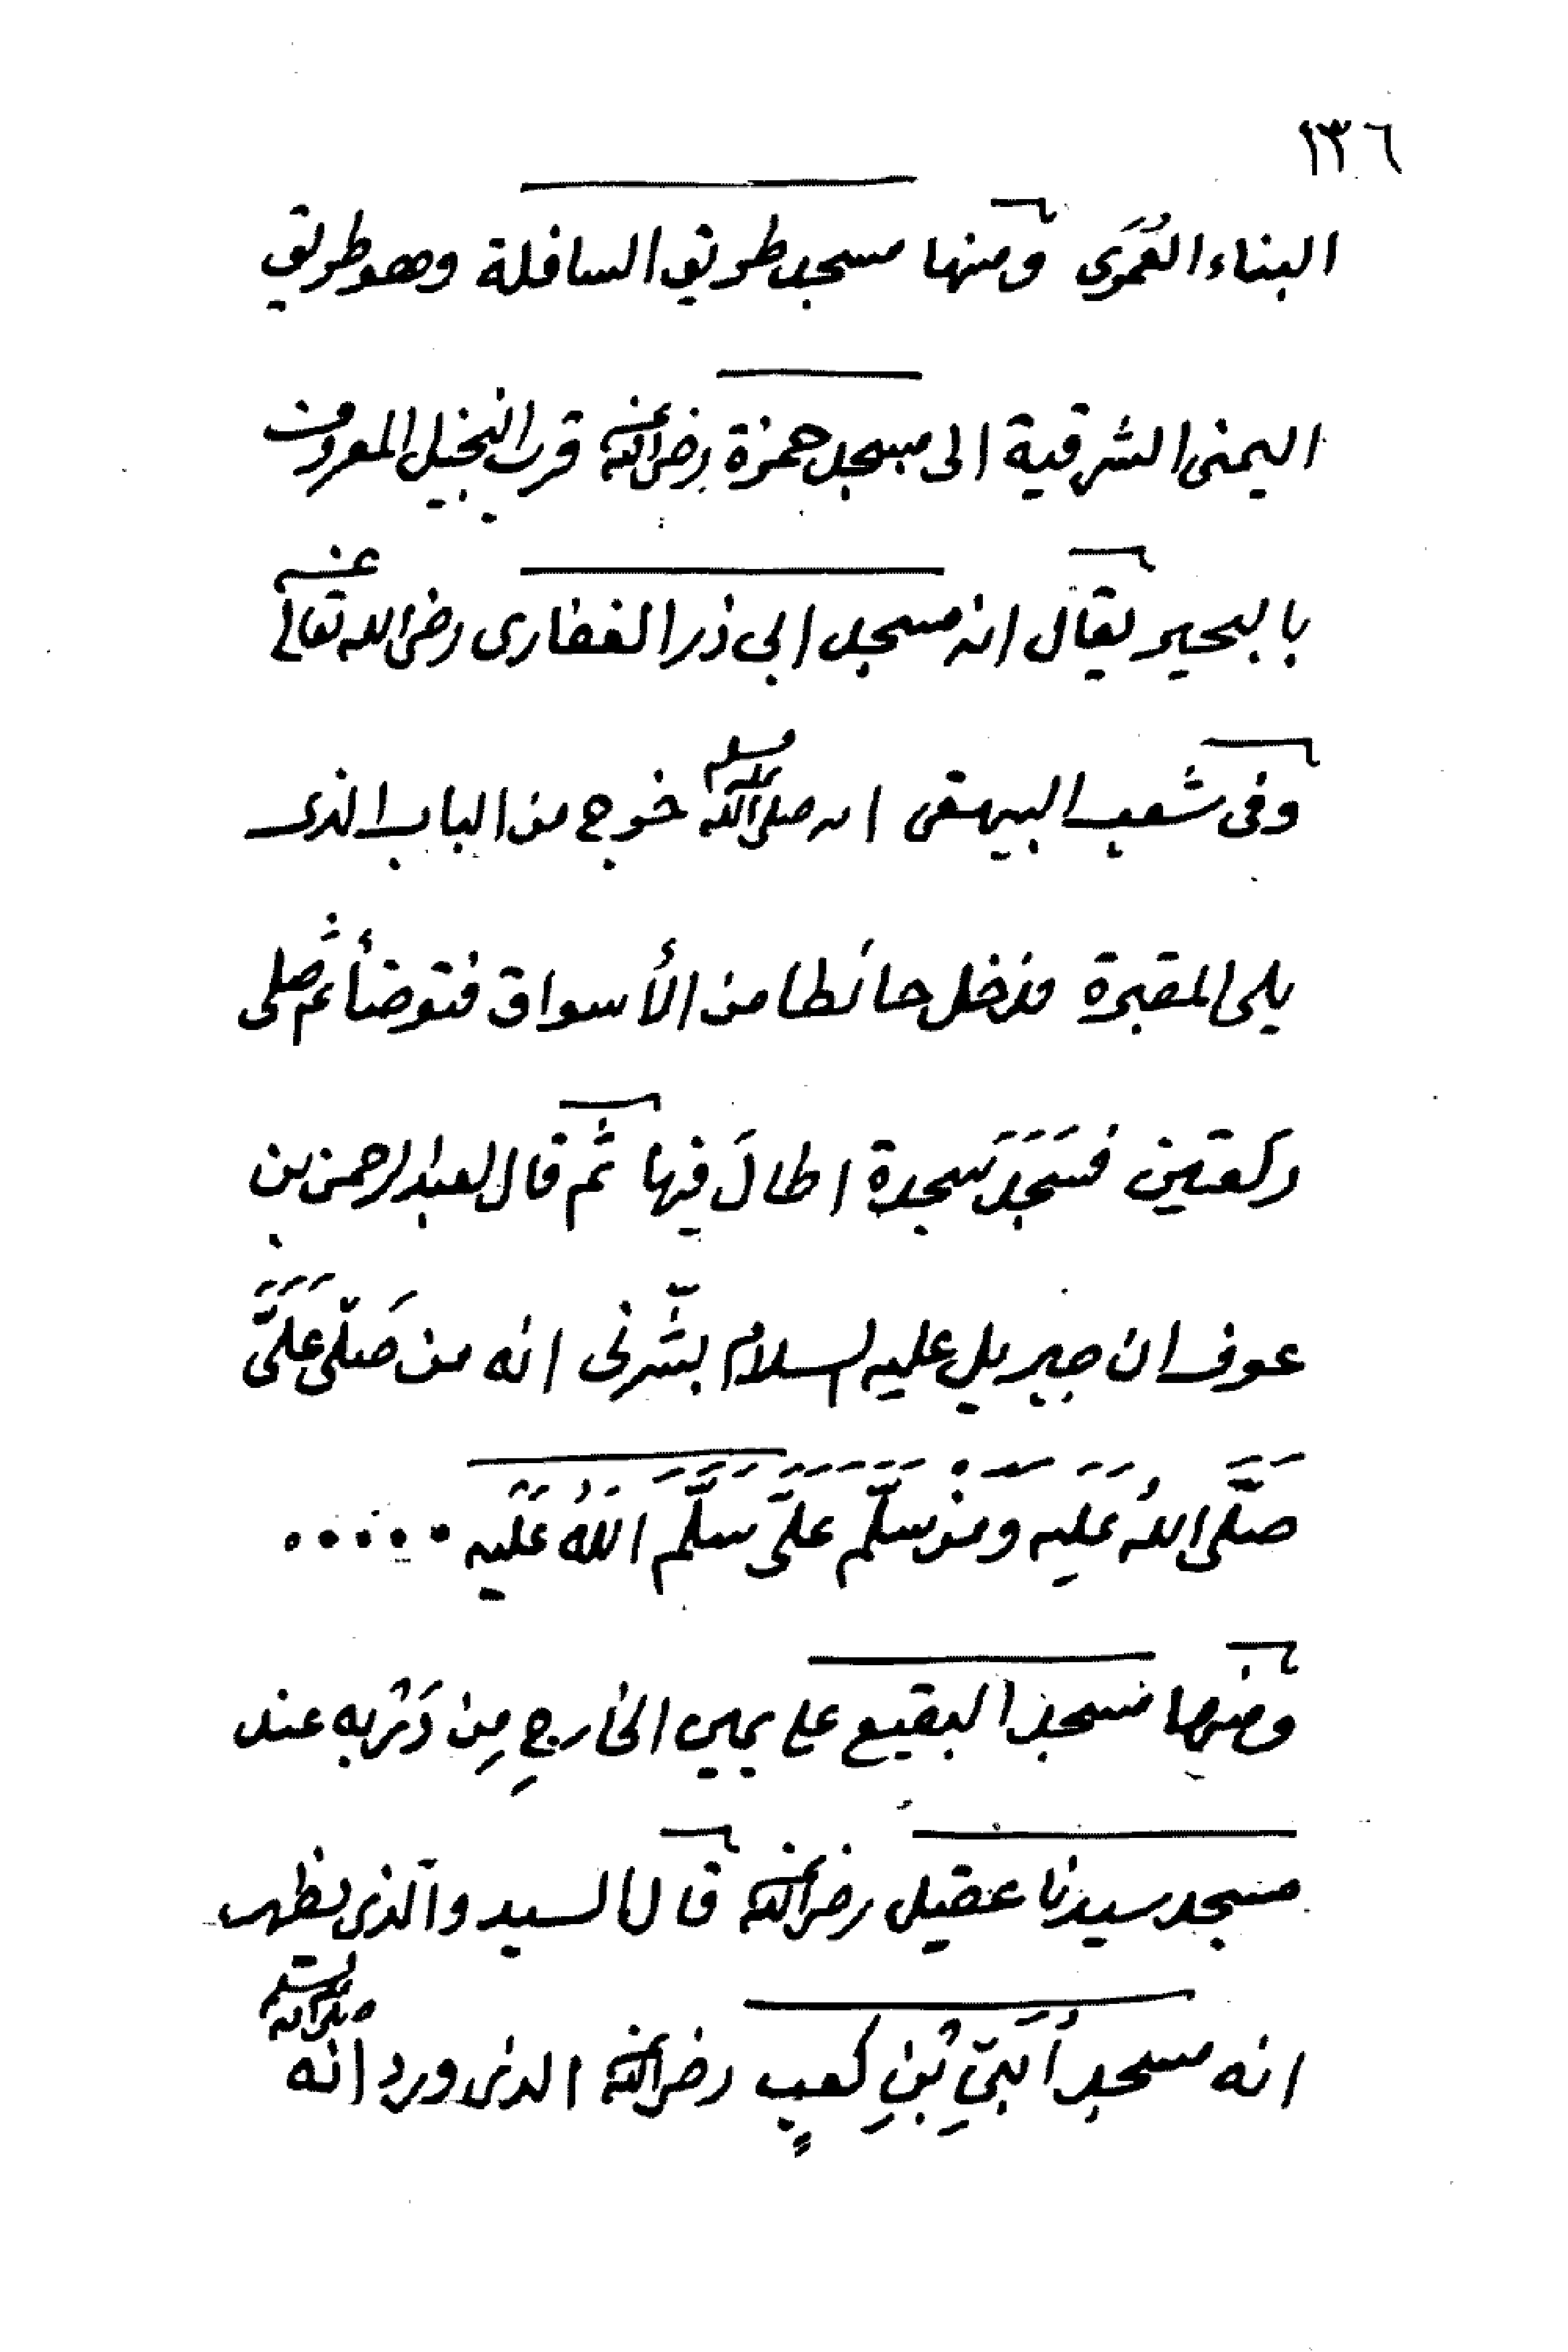 ١٣٦
البناء العُمَرى ومنها مسجد طريق السافلة وهو طريق
اليمنى الشرقية الى مسجد حمزة رضى الله عنه قرب النخيل المعروف
بالبحير يقال انه مسجد ابى ذر الغفارى رضى الله تعالى عنه
وفى شعب البيهقى انه صلى الله عليه وسلم خرج من الباب الذى
يلى المقبرة فدخل حائطا من الأسواق فتوضأ ثم صلى
ركعتين فسَجَدَ سَجدة اطالَ فيها ثم قال لعبد الرحمن بن
عوف ان جبريل عليه السلام بشّرنى انه من صَلّى عَلَىَّ
صَلَّى اللهُ عَلَيه ومَنْ سَلَّم عَلَىَّ سَلَّمَ اللهُ عَلَيه .....
ومنها مسجد البقيع على يمين الخارجِ مِن دَرْبه عند
مسجد سيدنا عقيل رضى الله عنه قال السيد والذى يظهر
انه مسجد أُبَىِّ بْنِ كعبٍ رضى الله عنه الذى ورد انه صلى الله عليه وسلم